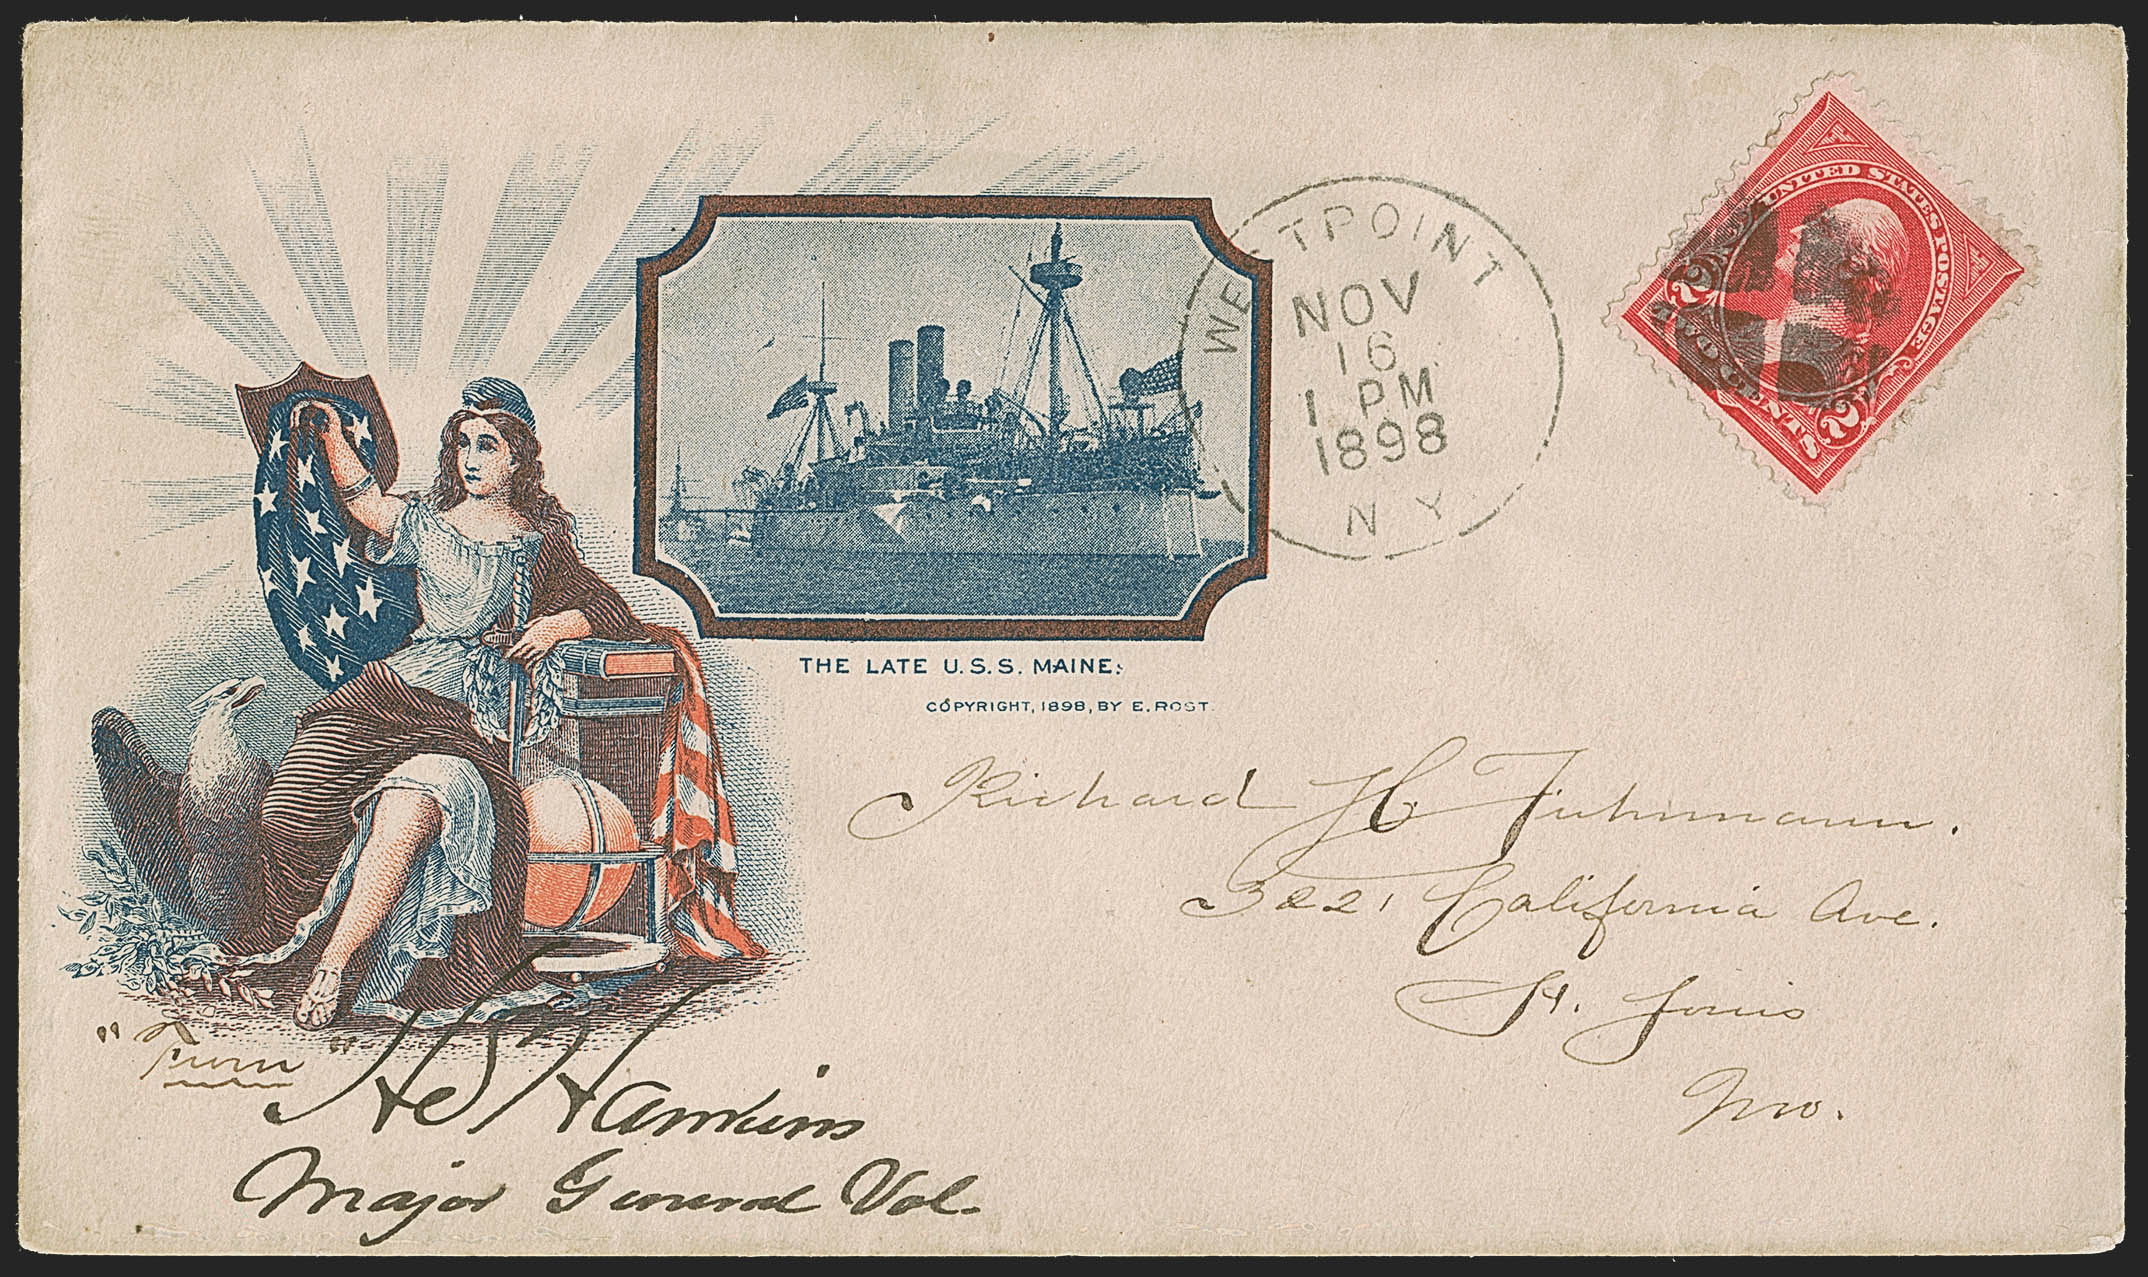 UNITED STATES POSTAGE
2 TWO CENTS 2
WESTPOINT
NOV
16
1 PM
1898
N Y
THE LATE U.S.S. MAINE.
COPYRIGHT, 1898, BY E. ROST.
Richard H Fuhrmann.
3221 California Ave.
St. Louis
Mo.
"Turn"
H S Hawkins
Major General Vol.